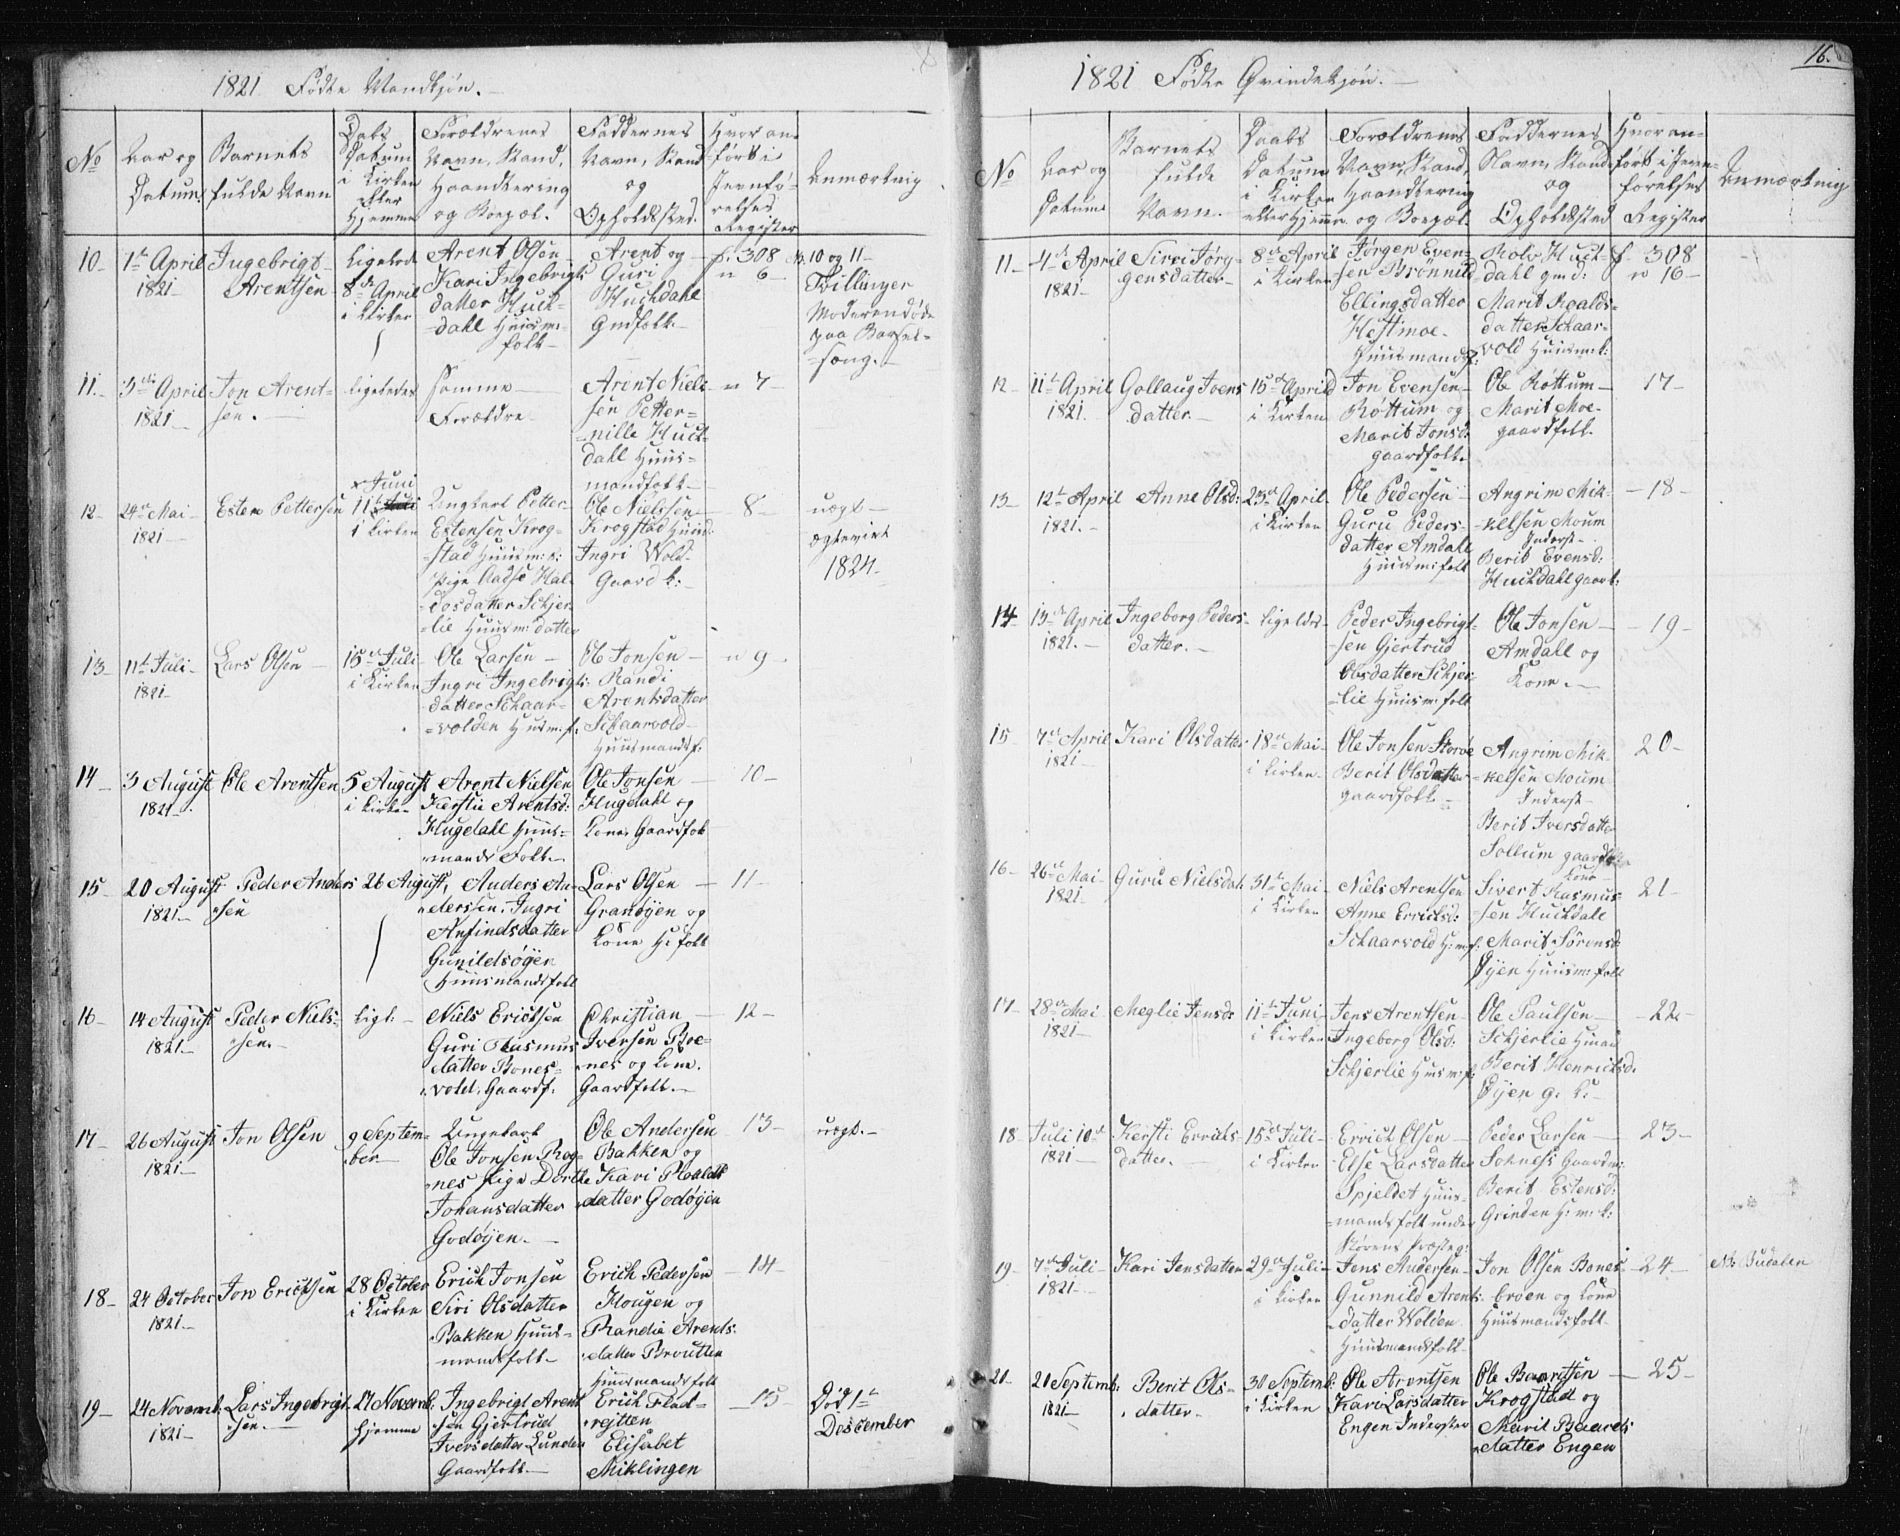 1821 Fødte Mandkjøn.
No
Aar og
Datum.
Barnets
fulde Navn
Daabs
Datum
i Kirken
eller
Hjemme
Forældrenes
Navn, Stand,
Haandtering
og Boepæl.
Faddernes
Navn, Stand
og
Opholdssted.
Hvor an-
ført i
Jevnfø-
relses
Register
Anmærkning
10-
1te April
1821
Ingebrigt
Arentsen
Ligeled
8de April
i Kirken
Arent Olsen
Kari Ingebrigts
datter Huck-
dahl Huusm:
folk
Arent og
Guri
Huckdahl
Gmdfolk
f. 308
n 6
N. 10 og 11
Tvillinger
Moderen døde
paa Barsel-
seng.
11.
3die April
1821
Jon Arent-
sen.
ligeledes
Samme
Forældre
Arent Niels
sen Petter-
nille Huck-
dahl Huus-
mandfolk
n 7-
12-
24de Mai
1821
Esten Pettersen
x Juni
11te
i Kirken
Ungkarl Petter
Estensen Krog-
stad Huusm: s:
Pige Aadse Hal-
dosdatter Schjer
lie Huusm: datter
Ole Nielssen
Krogstad Huusm:
Ingri Wold
Gaard k:
8-
uægt
ægteviet
1824
13-
11te Juli
1821
Lars Olsen
15de Juli
i Kirken
Ole Larsen
Ingri Ingebrigts:
datter Schaar-
volden Husm: f.
Ole Jonsen
Randi
Arentsdatter
Schaarvold
Huusmandsf:
n 9-
14-
3 August
1821
Ole Arentsen
5 August
i Kirken
Arent Nielsen
Kerstie Arentsd:
Hugdahl Huus-
mands Folk
Ole Jonsen
Hugdahl og
Kone Gaardfolk
10-
15-
20 August
1821
Peder Anders
sen
26 August,
Anders An-
derssen. Ingri
Anfindsdatter
Gunildsøyen
Huusmandsfolk
Lars Olsen
Granøyen og
Kone H: folk
11-
16-
14 August
1821
Peder Niels-
sen
Ligl:
Niels Erichsen
Guri Rasmus
datter Bones-
vold. Gaardf.
Christian
Iversen Boe-
nes og Kone.
Gaardfolk.
12-
17-
26 August
1821
Jon Olsen
9 Septem-
ber
Ungekarl
Ole Jonsen Rog-
nes Pige Dorthe
Johansdatter
Godøyen.
Ole Andersen
Bakken og
Kari Roalds
datter Godøyen
13-
uægt.
18-
24 October
1821
Jon Erichsen
28 October
i Kirken
Erich Jonsen
Siri Olsdatter
Bakken Huus-
mandsfolk
Erich Pedersen
Hougen og
Randie Arents-
datter Broutten
Huusmandsfolk
14-
19-
24 Novemb:
1821
Lars Ingebrigt
sen
27 Novemb:
Hjemme
Ingebrigt Arent
sen Gjertrud
Iversdatter Lunden
Gaardfolk
Erich Flad-
rejtten
Elisabet
Miklingen
15-
Død 1te
Descember
16.
1821 Fødte Qvindekjøn.
No
Aar og
Datum
Barnets
fulde
Navn.
Daabs
Datum
i Kirken
eller Hjemme
Forældrenes
Navn, Stand,
Haandtering
og Boepæl
Faddernes
Navn, Stand
og
Opholdssted
Hvor an-
ført i Jevn-
førelses
Register
Anmærkning
11-
4de April
1821
Siri Jør-
gensdatter
8de April
i Kirken
Jørgen Even-
sen Brønnild
Ellingsdatter
Hestmoe
Huusmandsf:
Rolv Huck-
dahl gmd:
Marit Roalds-
datter Schaar-
vold Huusm: k:
f 308
n 16-
12-
11te April
1821.
Gollaug Joens
datter
15de April
i Kirken
Jon Evensen
Røttum og
Marit Jonsd:
gaardfolk
Ole Rottum
Marit Moe
gaardfolk
17-
13-
12te April
1821.
Anne Olsd:
23de April
i Kirken
Ole Pedersen
Guru Peders-
datter Amdahl
Huusm: folk
Angrim Mik-
kelsen Moum
Inderst
Berit Evensd:
Huckdahl gaark:
18-
14-
13de April
1821.
Ingeborg Peders-
datter.
Ligeldes
Peder Ingebrigt-
sen Gjertrud
Olsdatter Schjer-
lie Huusm: folk
Ole Jonsen
Amdahl og
Kone.
19-
15
7de April
1821
Kari Olsdatter
18de Mai
i Kirken
Ole Jonsen Storøe
Berit Olsdatter
gaardfolk
Angrim Mik-
kelsen Moum
Inderst
Berit Iversdatter
Sollum gaard
Kone
20-
16-
26de Mai
1821
Guru Nielsdat:
31te Mai
i Kirken
Niels Arentsen
Anne Erricksd:
Schaarvold H: m: f:
Sivert Rasmus-
sen Huckdahl
Marit Sørensd:
Øyen Huusm: folk
21-
17-
28de Mai
1821
Meglie Jensd:
11te Juni
i Kirken
Jens Arentsen
Ingeborg Olsd:
Schjerlie Husm: f:
Ole Paulsen
Schjerlie Hmand
Berit Henricksd:
Øyen g: k:
22-
18
Juli 10de
1821
Kersti Erricks-
datter.
15de Juli
i Kirken
Errich Olsen
Else Larsdatter
Spjeldet Huus-
mandsfolk under
Størens Præsteg:
Peder Larsen
Sohness Gaardm:
Berit Estensd:
Grinden H: m: k:
23-
19-
7de Juli
1821
Kari Jensdatter
29de Juli
i Kirken
Jens Andersen
Gunnild Arents-
datter Wolden
Huusmandsfolk
Jon Olsen Bones-
broen og Kone
Huusmandsfolk
24-
Nb: Budalen
20-
20 Septemb:
1821
Berit Ols-
datter
30 Septemb:
i Kirken
Ole Arentsen
Kari Larsdatter
Engen Inderster
Ole Baartsen
Krogstad og
Marit Baards
datter Engen
25-